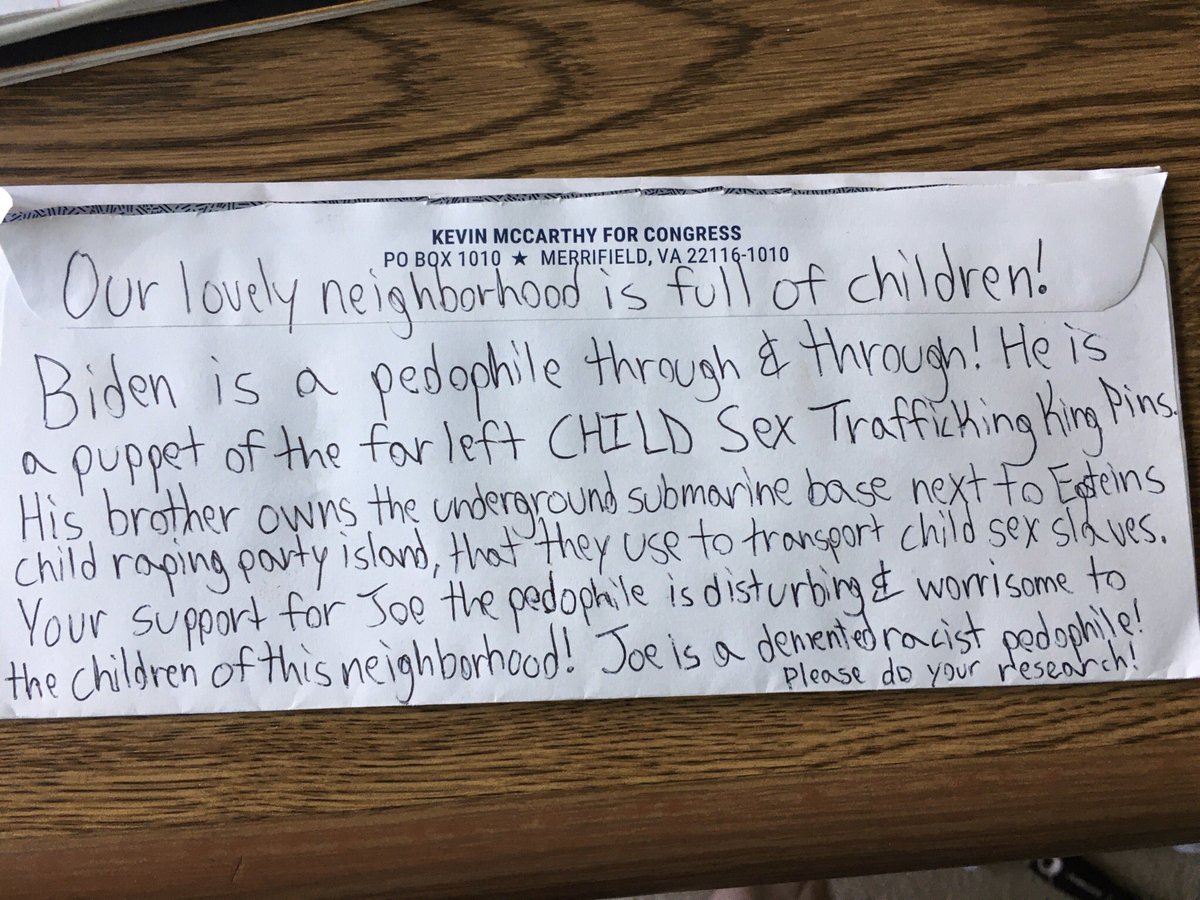 KEVIN MCCARTHY FOR CONGRESS
PO BOX 1010 ★ MERRIFIELD, VA 22116-1010
Our lovely neighborhood is full of children!
Biden is a pedophile through & through! He is
a puppet of the far left CHILD Sex Trafficking King Pins.
His brother owns the underground submarine base next to Epsteins
child raping party island, that they use to transport child sex slaves.
Your support for Joe the pedophile is disturbing & worrisome to
the children of this neighborhood! Joe is a demented racist pedophile!
Please do your research!